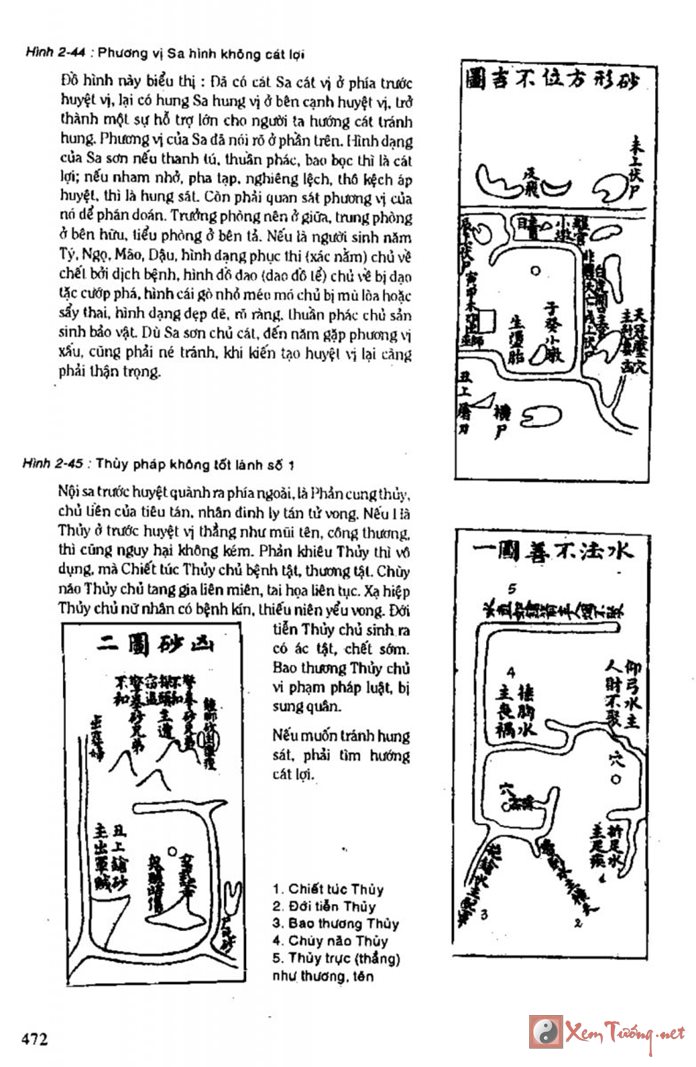 Hình 2-44 : Phương vị Sa hình không cát lợi
Đồ hình này biểu thị : Đã có cát Sa cát vị ở phía trước
huyệt vị, lại có hung Sa hung vị ở bên cạnh huyệt vị, trở
thành một sự hỗ trợ lớn cho người ta hướng cát tránh
hung. Phương vị của Sa đã nói rõ ở phần trên. Hình dạng
của Sa sơn nếu thanh tú, thuần phác, bao bọc thì là cát
lợi; nếu nham nhở, pha tạp, nghiêng lệch, thô kệch áp
huyệt, thì là hung sát. Còn phải quan sát phương vị của
nó để phán đoán. Trưởng phòng nên ở giữa, trung phòng
ở bên hữu, tiểu phòng ở bên tả. Nếu là người sinh năm
Tý, Ngọ, Mão, Dậu, hình dạng phục thi (xác nằm) chủ về
chết bởi dịch bệnh, hình đồ đao (dao đồ tể) chủ về bị đạo
tặc cướp phá, hình cái gò nhỏ méo mó chủ bị mù lòa hoặc
sẩy thai, hình dạng đẹp đẽ, rõ ràng, thuần phác chủ sản
sinh bảo vật. Dù Sa sơn chủ cát, đến năm gặp phương vị
xấu, cũng phải né tránh, khi kiến tạo huyệt vị lại càng
phải thận trọng.
圖吉不位方形砂
未上伏尸
戌飛
子癸小墩
生墮胎
丑上屠刀
橫尸
Hình 2-45 : Thủy pháp không tốt lành số 1
Nội sa trước huyệt quành ra phía ngoài, là Phản cung thủy,
chủ tiền của tiêu tán, nhân đinh ly tán tử vong. Nếu là
Thủy ở trước huyệt vị thẳng như mũi tên, công thương,
thì cũng nguy hại không kém. Phản khiêu Thủy thì vô
dụng, mà Chiết túc Thủy chủ bệnh tật, thương tật. Chùy
não Thủy chủ tang gia liên miên, tai họa liên tục. Xạ hiệp
Thủy chủ nữ nhân có bệnh kín, thiếu niên yểu vong. Đới
tiễn Thủy chủ sinh ra
có ác tật, chết sớm.
Bao thương Thủy chủ
vi phạm pháp luật, bị
sung quân.
Nếu muốn tránh hung
sát, phải tìm hướng
cát lợi.
二圖砂凶
丑上鎗砂
主出軍賊
1. Chiết túc Thủy
2. Đới tiễn Thủy
3. Bao thương Thủy
4. Chùy não Thủy
5. Thủy trực (thẳng)
như thương, tên
一圖善不法水
5
4
主喪禍
仰弓水主
人財不聚
穴
穴
折足水
主足疾
3
2
472
XemTướng.net